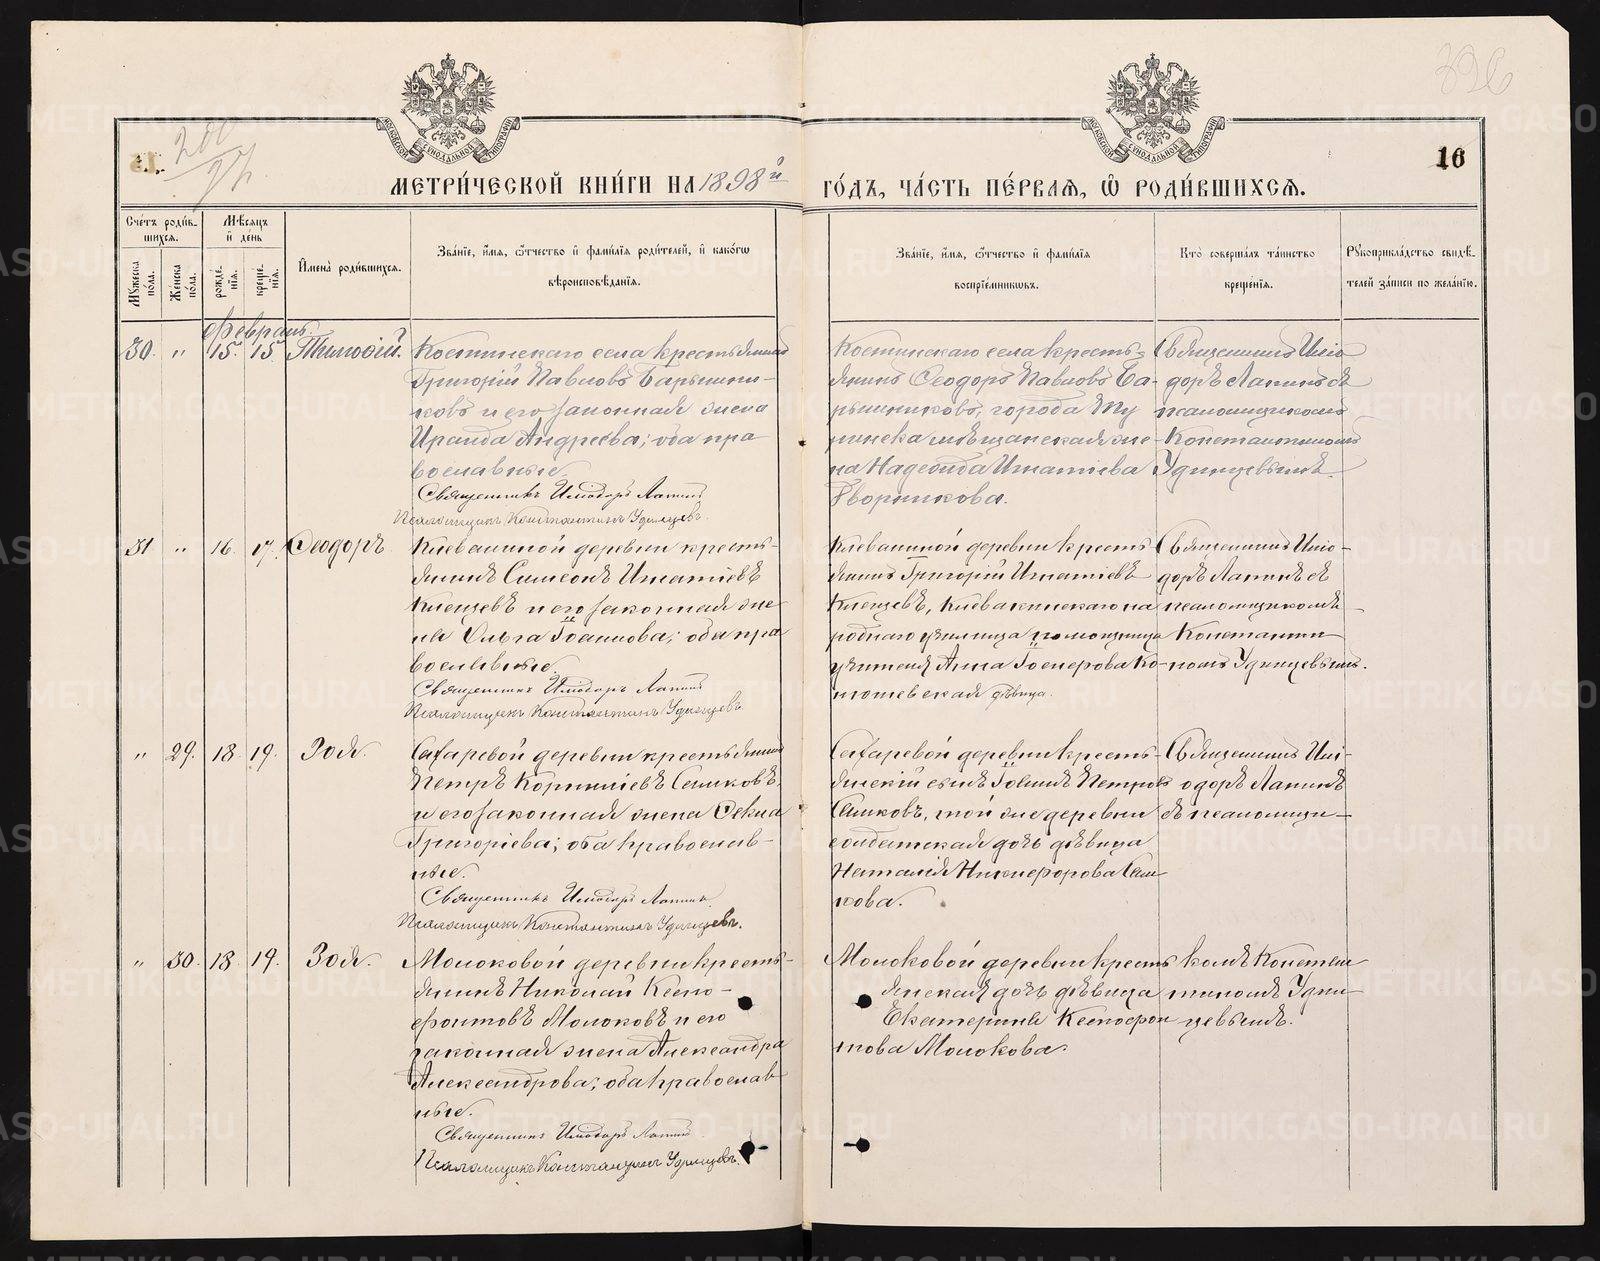 396
200/97
16
МЕТРИ́ЧЕСКОЙ КНИ́ГИ НА 1898й ГО́ДЪ, ЧА́СТЬ ПЕ́РВАѦ, Ѡ РОДИ́ВШИХСѦ.
Сче́тъ роди́в-
шихсѧ.
Мѣ́сѧцъ
и҆ де́нь
Мꙋ́жеска
по́ла.
Же́нска
по́ла.
рожде́-
нїѧ.
креще́-
нїѧ.
И҆мена̀ роди́вшихсѧ.
Зва́нїе, и҆́мѧ, ѻ҆́тчество и҆ фами́лїѧ роди́телей, и҆ како́гѡ
вѣроисповѣ́данїѧ.
Зва́нїе, и҆́мѧ, ѻ҆́тчество и҆ фами́лїѧ
воспрїе́мникѡвъ.
Кто̀ соверша́лъ та́инство
креще́нїѧ.
Рꙋкоприкла́дство свидѣ́-
телей за́писи по жела́нїю.
Февраль.
30. " 15. 15. Тимоѳій.
Костинскаго села крестьянинъ
Григорій Павловъ Барышни-
ковъ и его законная жена
Ираида Андреева; оба пра
вославные.
Священникъ Илиодоръ Лапинъ
Псаломщикъ Константинъ Удинцевъ.
Костинскаго села кресть-
янинъ Ѳеодоръ Павловъ Ба-
рышниковъ, города Ту
ринска мѣщанская же-
на Надежда Игнатіева
Дворникова.
Священникъ Иліо
доръ Лапинъ съ
псаломщикомъ
Константиномъ
Удинцевымъ.
31 " 16. 17. Ѳеодоръ
Клевакиной деревни кресть-
янинъ Симеонъ Игнатіевъ
Клещевъ и его законная же
на Ольга Іоаннова; оба пра
вославные.
Священникъ Илиодоръ Лапинъ
Псаломщикъ Константинъ Удинцевъ.
Клевакиной деревни кресть
янинъ Григорій Игнатіевъ
Клещевъ, Клевакинскаго на
роднаго училища помощница
учителя Анна
дѣвица.
Священникъ Иліо-
доръ Лапинъ съ
псаломщикомъ
Константи-
номъ Удинцевымъ.
" 29. 18. 19. Зоя.
Сахаревой деревни крестьянинъ
Петръ Корниліевъ Семковъ,
и его законная жена Ѳекла
Григоріева; оба православ-
ные.
Священникъ Илиодоръ Лапинъ
Псаломщикъ Константинъ Удинцевъ.
Сахаревой деревни кресть-
янскій сынъ Іоаннъ Петровъ
Семковъ, той же деревни
солдатская дочь дѣвица
Наталія Никифорова Сем
кова.
Священникъ Илі-
одоръ Лапинъ
съ псаломщи-
" 30. 18. 19. Зоя.
Молоковой деревни кресть-
янинъ Николай Ксено-
фонтовъ Молоковъ и его
законная жена Александра
Александрова; оба православ
ные.
Священникъ Илиодоръ Лапинъ
Псаломщикъ Константинъ Удинцевъ.
Молоковой деревни кресть
янская дочь дѣвица
Екатерина Ксенофон
това Молокова.
комъ Констан
тиномъ Удин-
цевымъ.
METRIKI.GASO-URAL.RU